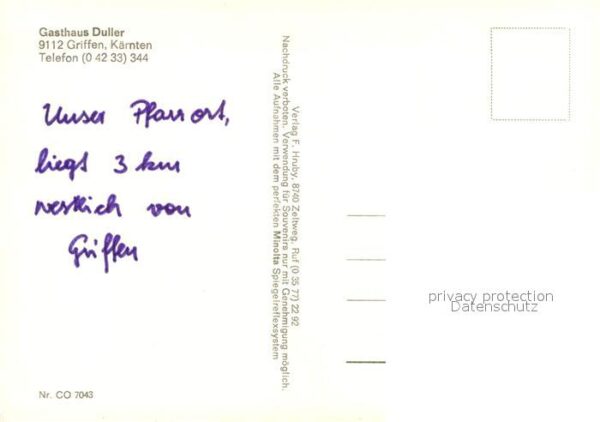 Gasthaus Duller
9112 Griffen, Kärnten
Telefon (0 42 33) 344
Unser Pfarrort,
liegt 3 km
westlich von
Griffen
Verlag F. Hruby, 8740 Zeltweg, Ruf (0 35 77) 22 92
Nachdruck verboten. Verwendung für Souvenirs nur mit Genehmigung möglich.
Alle Aufnahmen mit dem perfekten Minolta Spiegelreflexsystem
privacy protection
Datenschutz
Nr. CO 7043